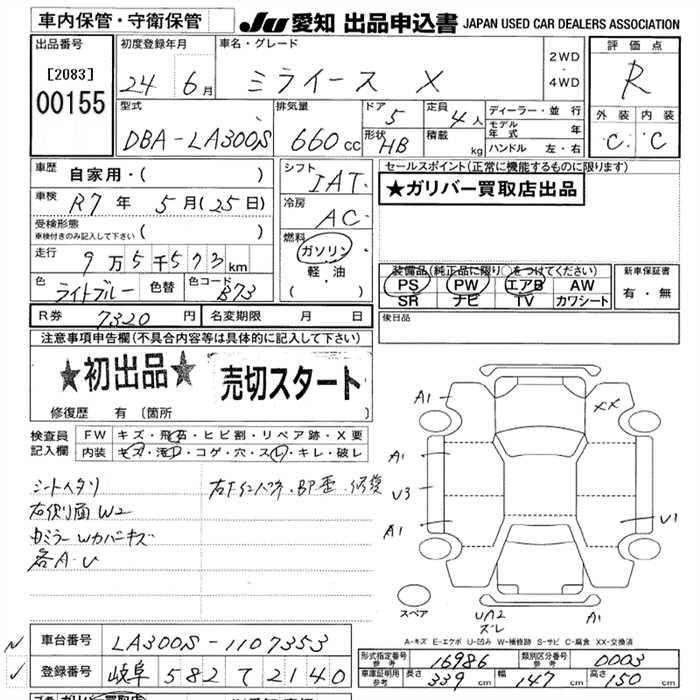 車内保管・守衛保管
JU 愛知 出品申込書 JAPAN USED CAR DEALERS ASSOCIATION
出品番号
[2083]
00155
初度登録年月
24 6月
車名・グレード
ミライース X
2WD
・
4WD
評価点
R
外装 内装
C C
型式
DBA-LA300S
排気量
660 cc
ドア
5
形状
HB
定員
4人
積載
kg
ディーラー・並行
モデル年式 年
ハンドル 左・右
車歴
自家用・( )
車検
R7 年 5月(25日)
受検形態
車検付きのみ記入して下さい ( )
走行
9万5千573km
色
ライトブルー
色替
色コード
B73
シフト
IAT
冷房
AC
燃料
ガソリン
軽・油
( )
セールスポイント(正常に機能するものに限ります)
★ガリバー買取店出品
装備品(純正品に限り○をつけてください)
PS PW エアB AW
SR ナビ TV カワシート
新車保証書
有・無
R券 7320 円
名変期限 月 日
後日品
注意事項申告欄(不具合内容等は具体的に記入して下さい)
★初出品★
売切スタート
修復歴 有(箇所 )
検査員記入欄
FW キズ・飛石・ヒビ割・リペア跡・X要
内装 キズ・汚れ・コゲ・穴・スレ・キレ・破レ
シートヘタリ
右側面W2
左ミラーWカバーキズ
各A・U
A1
XX
A1
U3
A1
U1
UA2
ズレ
A1
スペア
A-キズ E-エクボ U-凹み W-補修跡 S-サビ C-腐食 XX-交換済
車台番号 LA300S-1107353
登録番号 岐阜 582 て 2140
形式指定番号
参考
16986
類別区分番号
参考
0003
車庫証明用
参考
長さ 339 cm
幅 147 cm
高さ 150 cm